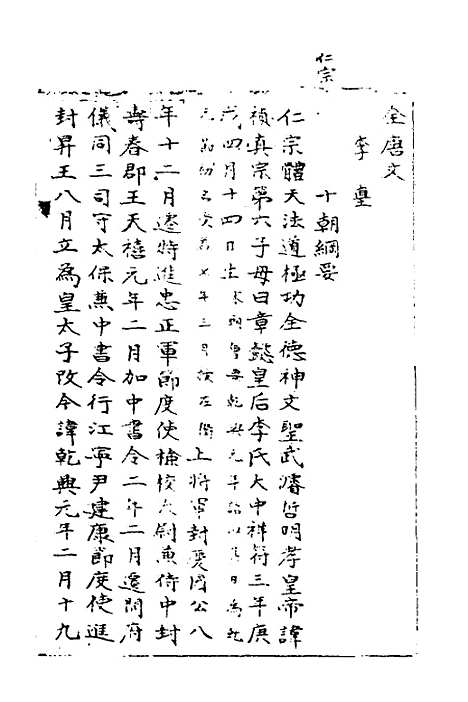 仁宗
全唐文
李𡌴
十朝綱要
仁宗體天法道極功全德神文聖武濬哲明孝皇帝諱
禎真宗第六子母曰章懿皇后李氏大中祥符三年庚
戌四月十四日生
元節 七年三月 左衛上將軍封慶國公八
年十二月遷特進忠正軍節度使檢校太尉兼侍中封
壽春郡王天禧元年二月加中書令二年二月遷開府
儀同三司守太保兼中書令行江寧尹建康節度使進
封昇王八月立為皇太子改今諱乾興元年二月十九